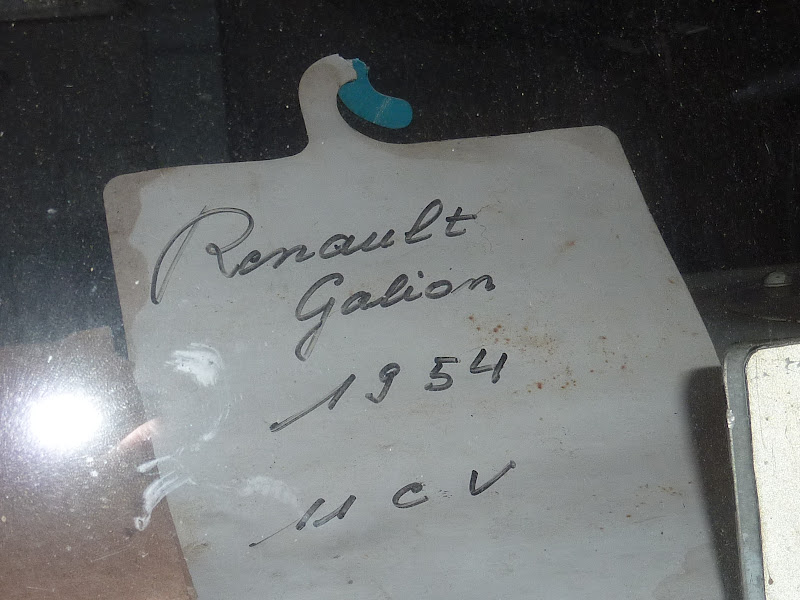 Renault
Galion
1954
11 CV